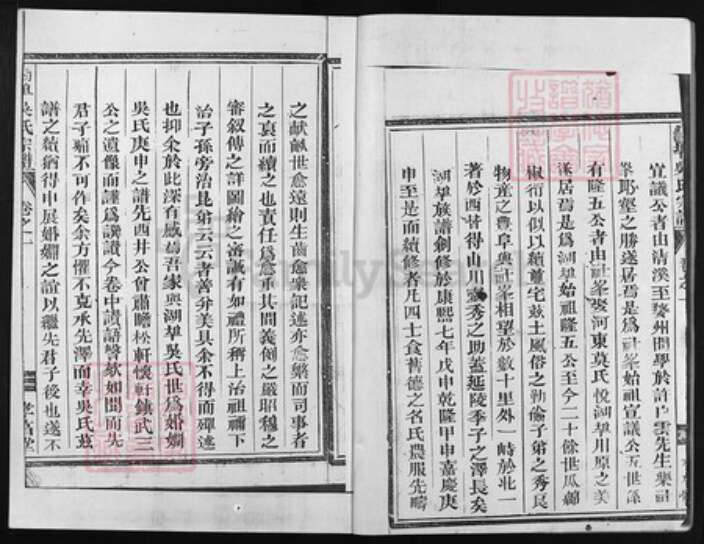 宣議公者由清溪至婺州問學於許白雲先生樂祖
峯耶壑之勝遂居焉是爲社峯始祖宣議公五世孫
有隆五公者由社峯娶河東莫氏悅湖𡋾川原之美
遂居焉是爲湖𡋾始祖隆五公至今二十餘世瓜緜
椒衍以似以續奠宅兹土風俗之勤儉子弟之秀良
物產之豐阜與社峯相望於數十里外一峙於北一
著於西皆得山川靈秀之助蓋延陵季子之澤長矣
湖𡋾族譜創修於康熙七年戊申乾隆甲申嘉慶庚
申至是而續修者凡四士食舊德之名氏農服先疇
之畎畝世愈遠則生齒愈衆記述亦愈繁而司事者
之裒而續之也責任爲愈重其間義例之嚴昭穆之
審叙傳之詳圖繪之審誠有如禮所稱上治祖禰下
治子孫旁治昆弟云云者善弁美具余不得而殫述
也抑余於此深有感焉吾家與湖𡋾吳氏世爲婚姻
吳氏庚申之譜先西井公曾肅瞻松軒懷軒鎮武三
公之遺像而謹爲譔讚今卷中讚語謦欬如聞而先
君子痛不可作矣余方懼不克承先澤而幸吳氏茲
譜之續猶得申展婚姻之誼以繼先君子後也遂不
吳氏宗譜
卷之一